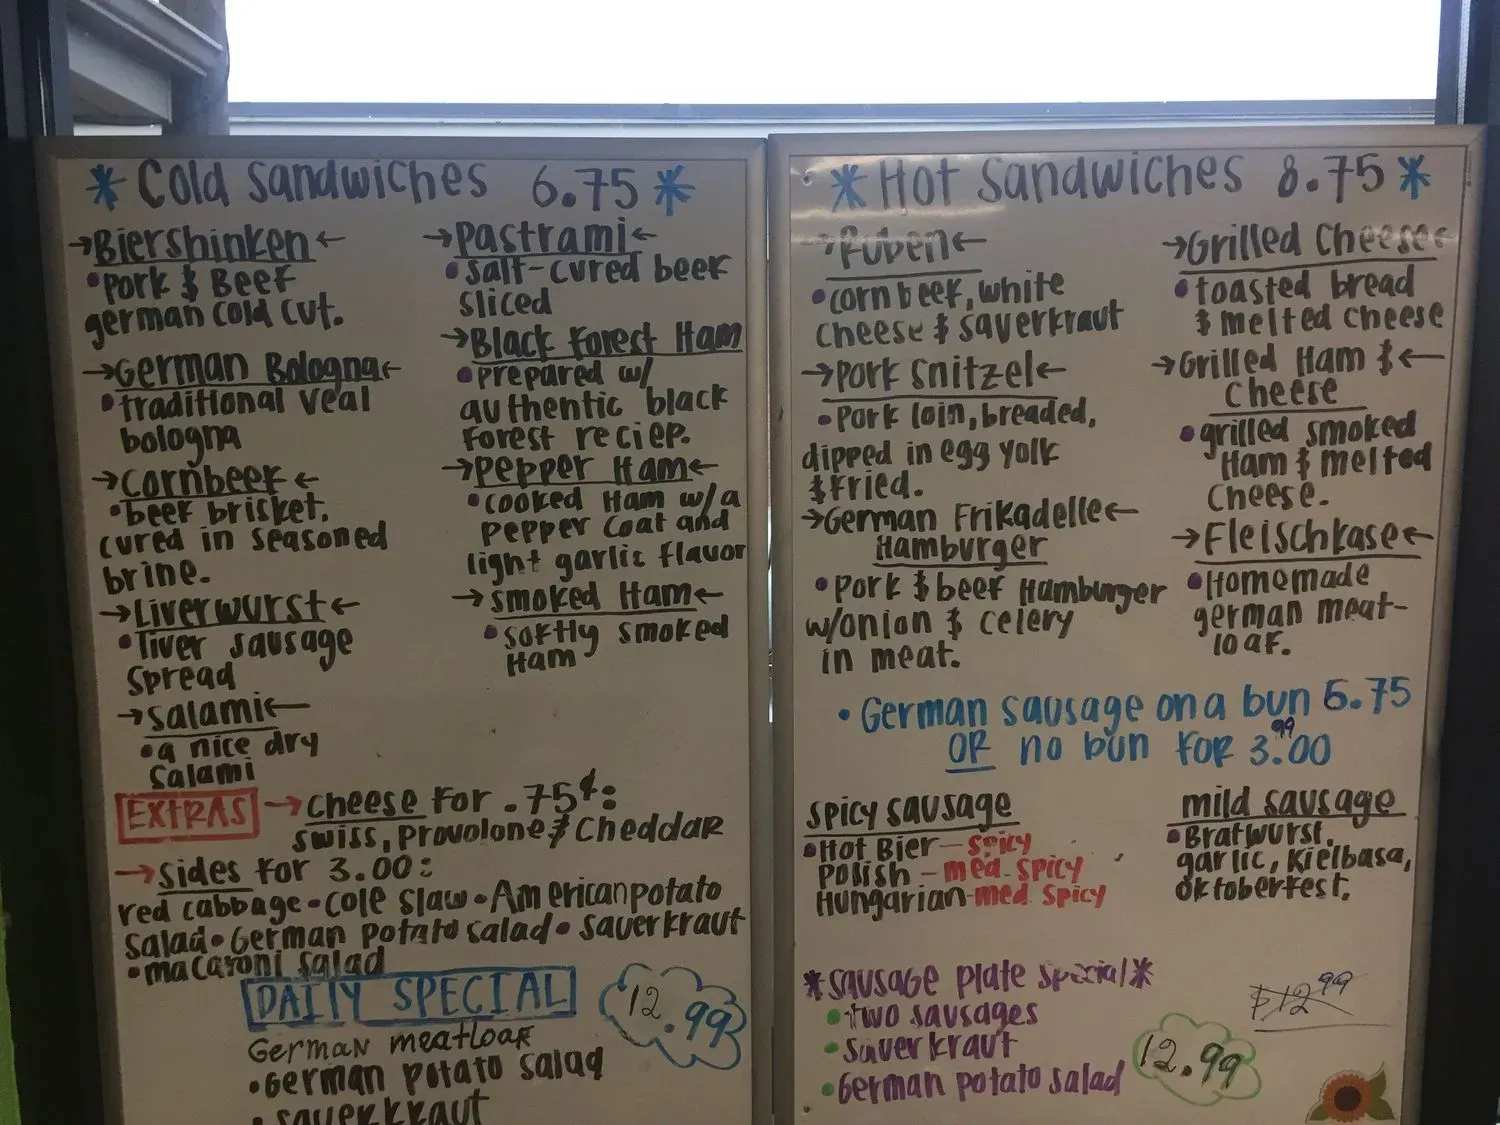 * Cold Sandwiches 6.75 *
→Biershinken←
•Pork & Beef
german cold cut.
→German Bologna←
•traditional veal
bologna
→Cornbeef←
•beef brisket.
cured in seasoned
brine.
→Liverwurst←
•liver sausage
spread
→Salami←
•a nice dry
salami
→Pastrami←
•salt-cured beef
sliced
→Black Forest Ham
•prepared w/
authentic black
forest reciep.
→Pepper Ham←
•cooked Ham w/a
pepper coat and
light garlic flavor
→smoked Ham←
•softly smoked
Ham
EXTRAS →cheese for .75¢:
swiss, provolone & cheddar
→sides for 3.00:
red cabbage•cole slaw•American potato
salad•German potato salad•sauerkraut
•macaroni salad
DAILY SPECIAL
12.99
German meatloaf
•German potato salad
•sauerkraut
* Hot Sandwiches 8.75 *
→Ruben←
•corn beef, white
cheese & sauerkraut
→Pork Snitzel←
•Pork loin, breaded,
dipped in egg yolk
& fried.
→German Frikadelle←
Hamburger
•Pork & beef Hamburger
w/onion & celery
in meat.
→Grilled Cheese←
•toasted bread
& melted cheese
→Grilled Ham &←
cheese
•grilled smoked
Ham & melted
cheese.
→Fleischkase←
•Homemade
german meat-
loaf.
•German sausage on a bun 6.75
OR no bun for 3.99
spicy sausage
•Hot Bier-spicy
Polish-med spicy
Hungarian-med spicy
mild sausage
•Bratwurst,
garlic, Kielbasa,
Oktoberfest.
*sausage plate special*
•two sausages
•sauerkraut
•German potato salad
$12.99
12.99